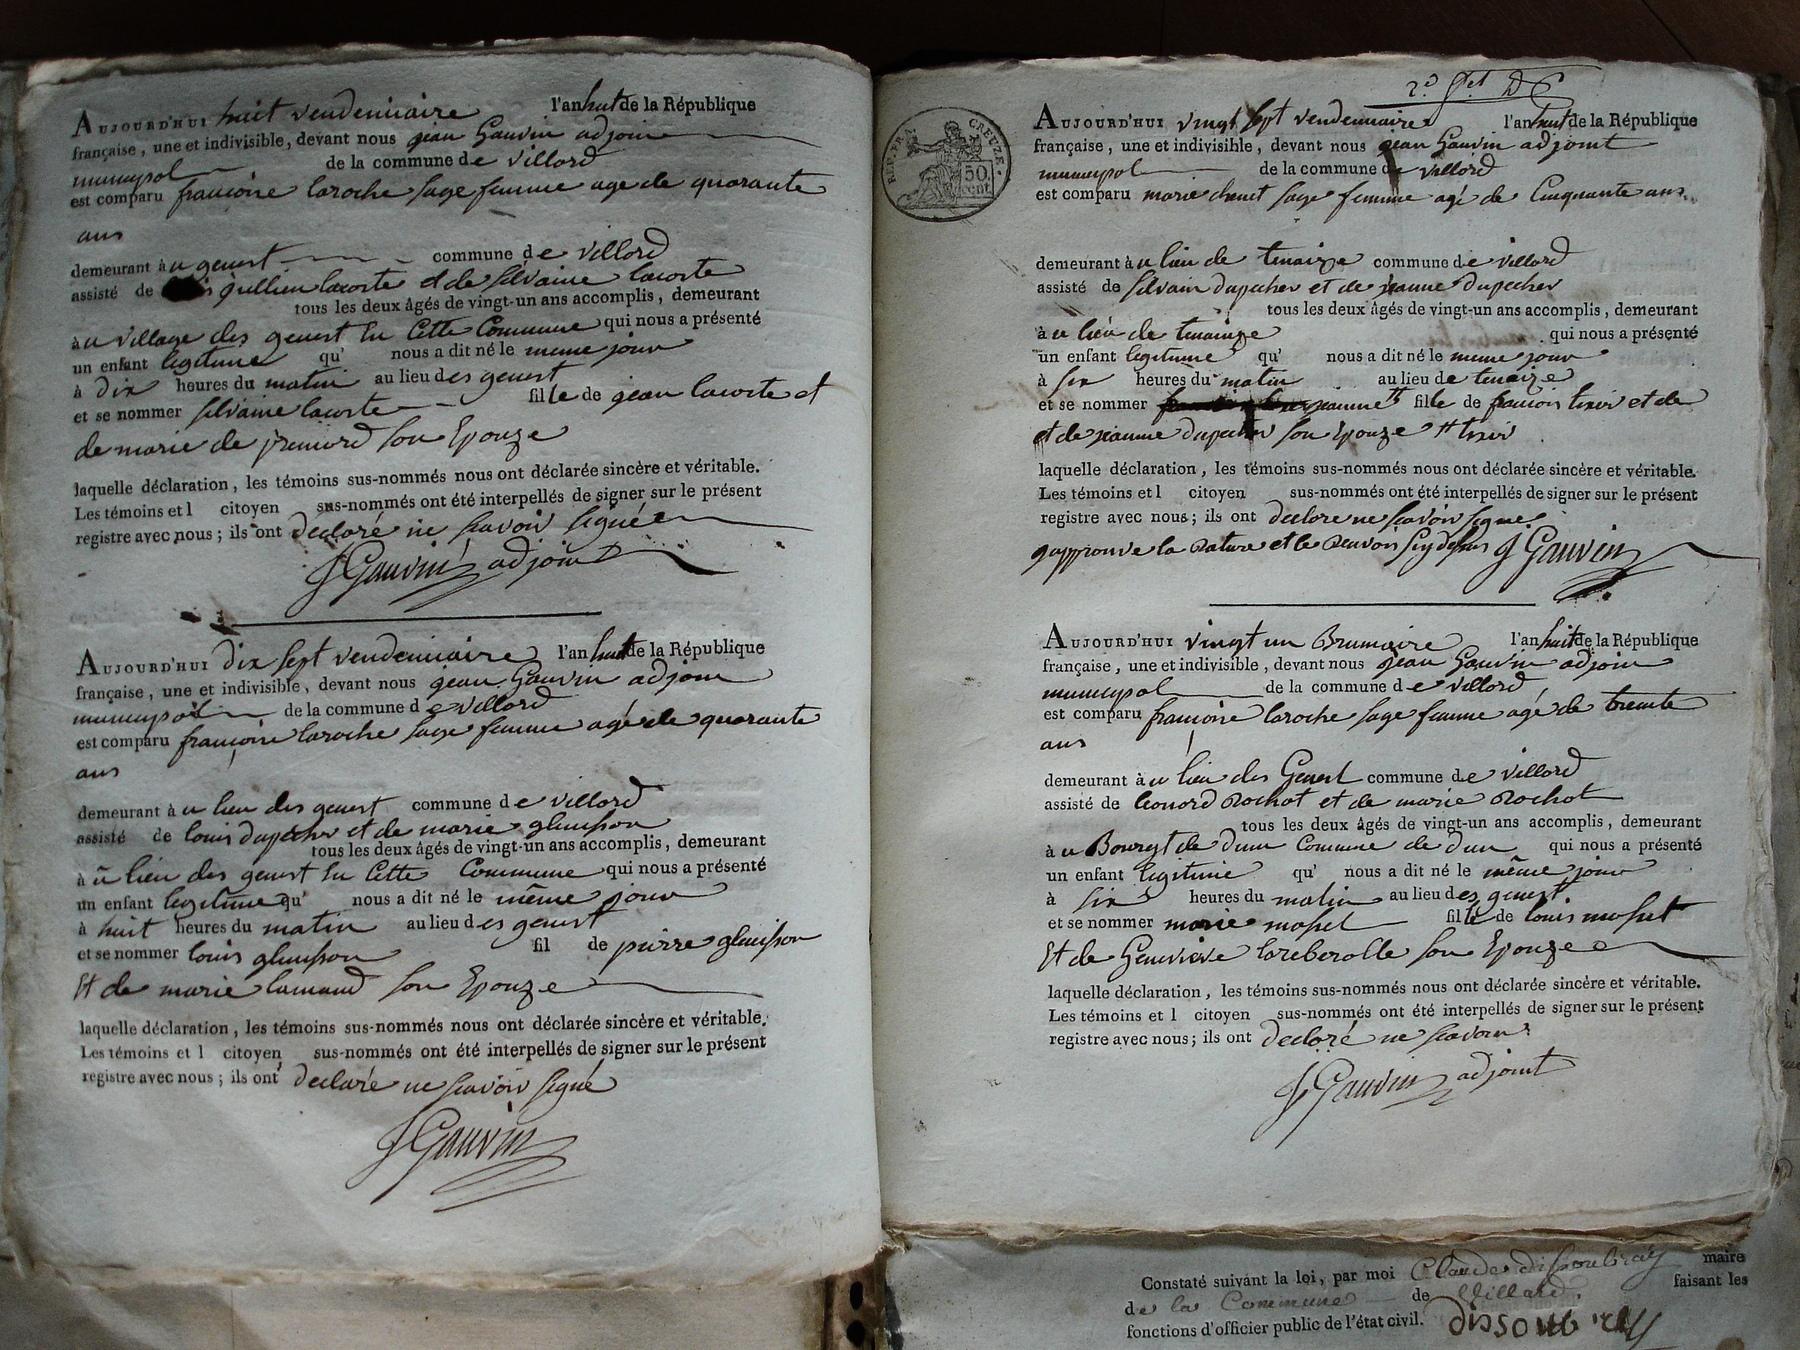 Aujourd'hui huit vendemiaire l'an huit de la République
française, une et indivisible, devant nous jean Gauvin adjoin
municypal de la commune de villard
est comparu françoise laroche sage femme age de quarante
ans
demeurant à u genest commune de villard
assisté de jullien lacorte et de silvaine lacorte
tous les deux âgés de vingt-un ans accomplis, demeurant
à u village des genest En Cette Commune qui nous a présenté
un enfant legitime qu' nous a dit né le meme jour
à dix heures du matin au lieu des genest
et se nommer silvaine lacorte fille de jean lacorte et
de marie de son Epouze
laquelle déclaration, les témoins sus-nommés nous ont déclarée sincère et véritable.
Les témoins et l citoyen sus-nommés ont été interpellés de signer sur le présent
registre avec nous; ils ont declaré ne scavoir signée
J Gauvin adjoint
Aujourd'hui dix sept vendemiaire l'an huit de la République
française, une et indivisible, devant nous jean Gauvin adjoin
municypal de la commune de villard
est comparu françoise laroche sage femme agé de quarante
ans
demeurant à u lieu des genest commune de villard
assisté de louis dupecher et de marie
tous les deux âgés de vingt-un ans accomplis, demeurant
à u lieu des genest En Cette Commune qui nous a présenté
un enfant legitime qu' nous a dit né le même jour
à huit heures du matin au lieu des genest
et se nommer louis fil de pierre
Et de marie lamaud son Epouze
laquelle déclaration, les témoins sus-nommés nous ont déclarée sincère et véritable.
Les témoins et l citoyen sus-nommés ont été interpellés de signer sur le présent
registre avec nous; ils ont declaré ne scavoir signé
J Gauvin
REP. FRA. CREUZE.
50 cent.
Aujourd'hui vingt sept vendemiaire l'an huit de la République
française, une et indivisible, devant nous jean Gauvin adjoint
municypal de la commune de villard
est comparu marie sage femme agé de Cinquante ans
demeurant à u lieu de tenaize commune de villard
assisté de silvain dupecher et de jeanne dupecher
tous les deux âgés de vingt-un ans accomplis, demeurant
à u lieu de tenaize qui nous a présenté
un enfant legitime qu' nous a dit né le meme jour
à six heures du matin au lieu de tenaize
et se nommer jeanne # fille de françois tixir et de
et de jeanne dupecher son Epouze # tixir
laquelle déclaration, les témoins sus-nommés nous ont déclarée sincère et véritable.
Les témoins et l citoyen sus-nommés ont été interpellés de signer sur le présent
registre avec nous; ils ont declare ne scavoir signe
japprouve la rature et le renvois sy desus J Gauvin
Aujourd'hui vingt un Brumaire l'an huit de la République
française, une et indivisible, devant nous jean Gauvin adjoin
municypal de la commune de villard
est comparu françoise laroche sage femme agé de trente
ans
demeurant à u lieu des Genest commune de villard
assisté de leonard Rochat et de marie Rochat
tous les deux âgés de vingt-un ans accomplis, demeurant
à u Bourgt de dun Commune de dun qui nous a présenté
un enfant legitime qu' nous a dit né le même jour
à six heures du matin au lieu des genest
et se nommer marie maset fille de louis maset
Et de Geneviève lareberolle son Epouze
laquelle déclaration, les témoins sus-nommés nous ont déclarée sincère et véritable.
Les témoins et l citoyen sus-nommés ont été interpellés de signer sur le présent
registre avec nous; ils ont declaré ne scavoir
J Gauvin adjoint
Constaté suivant la loi, par moi Claude dissoubray maire
de la Commune de Villard faisant les
fonctions d'officier public de l'état civil. dissoubray